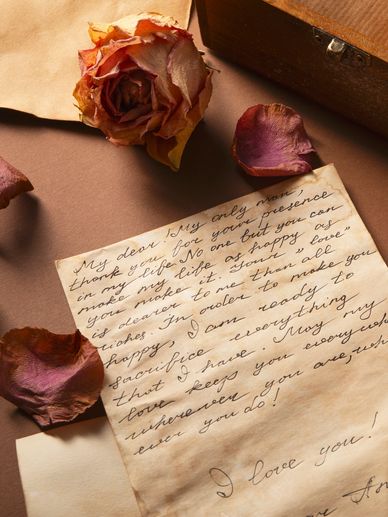 My dear! My only man,
thank you for your presence
in my life. No one but you can
make my life as happy as
you make it. Your "love"
is dearer to me than all
riches. In order to make you
happy, I am ready to
sacrifice everything
that I have. May my
love keeps you everywhere
wherever you are, wh
ever you do!
I love you!